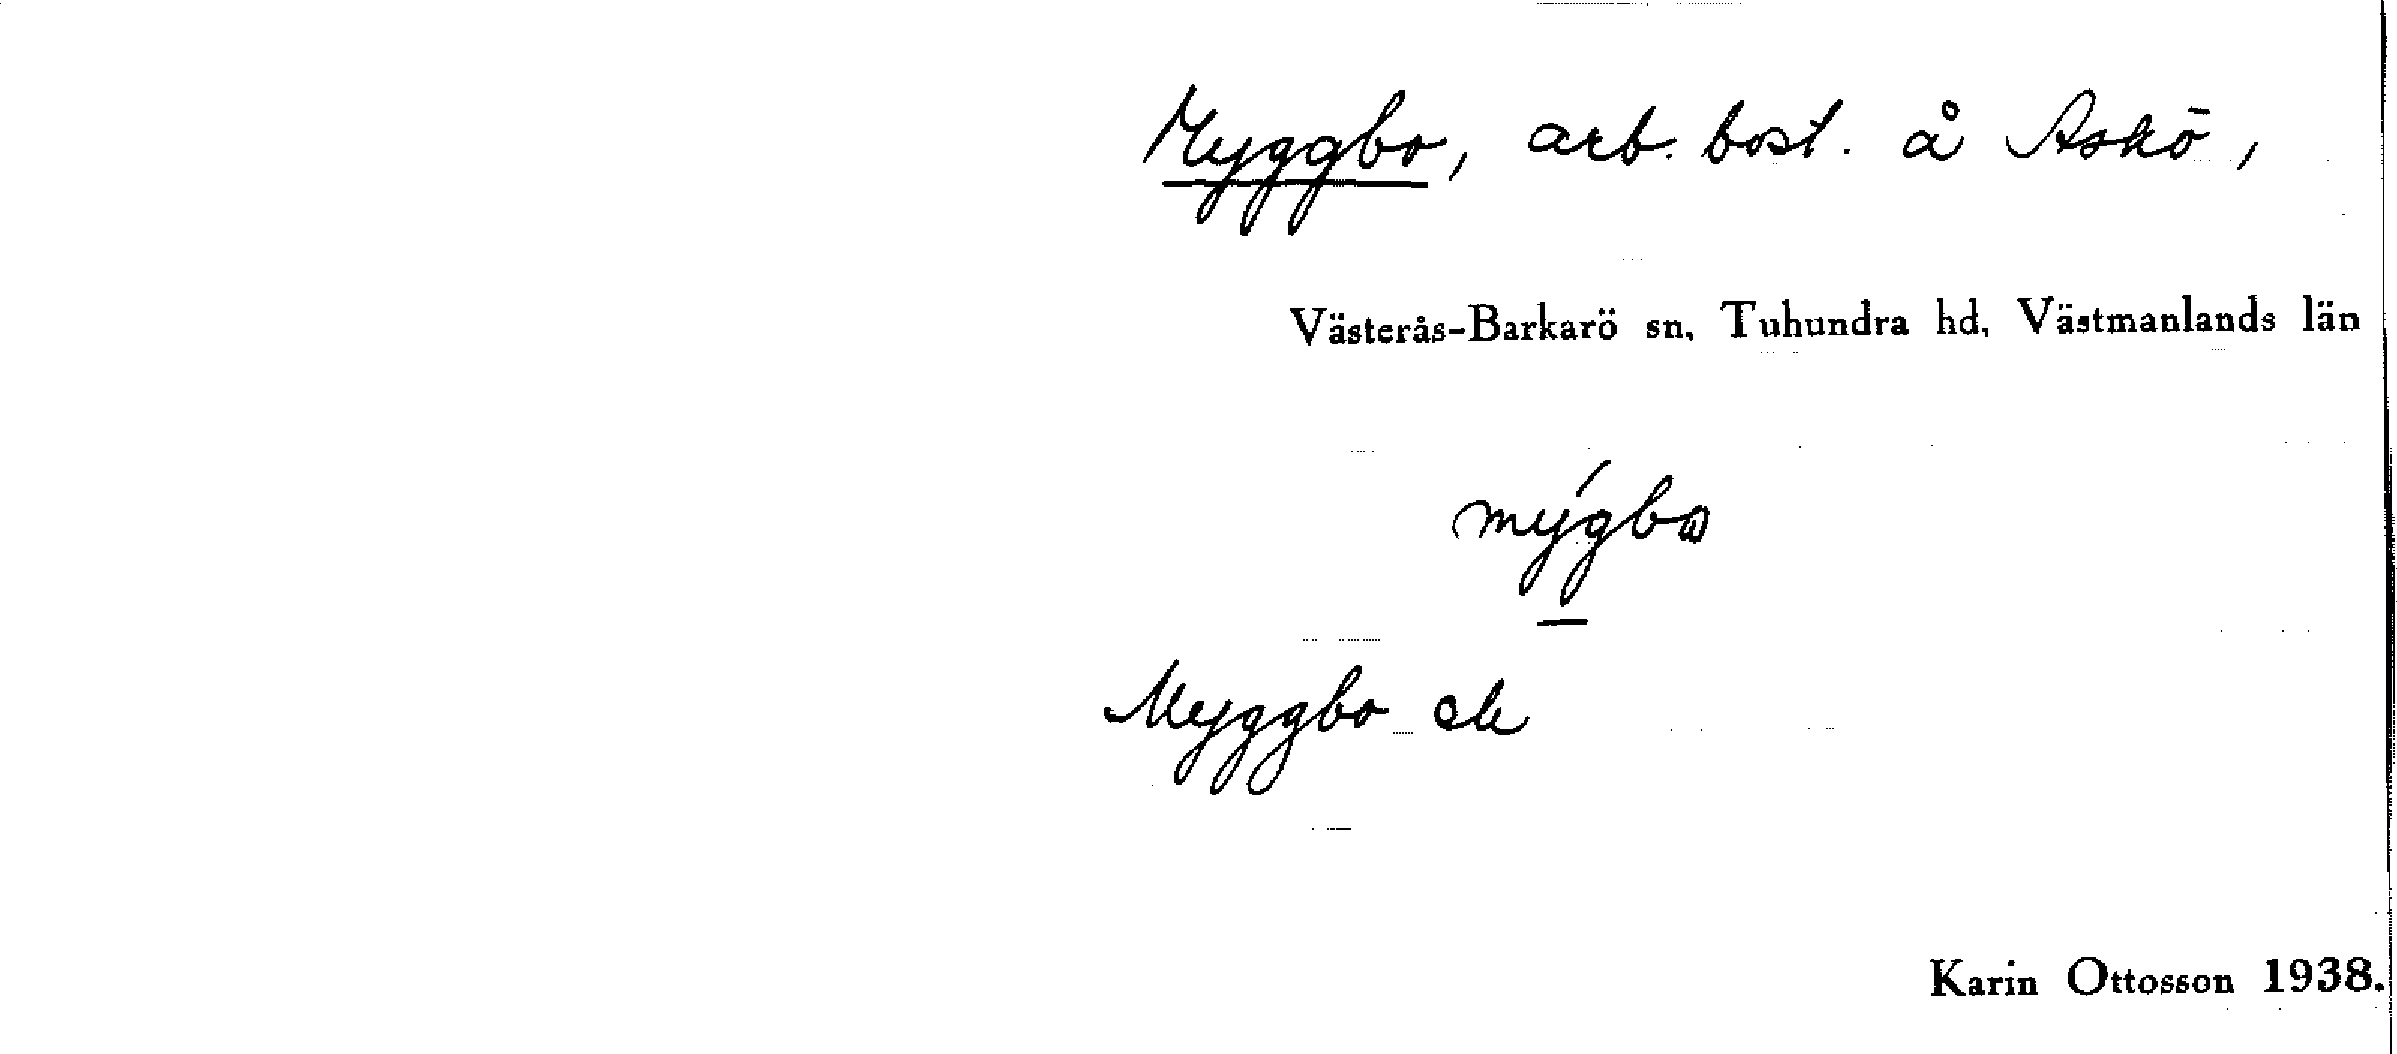 Myggbo, arb. bost. å Askö,
Västerås-Barkarö sn, Tuhundra hd, Västmanlands län
mýgbo
Myggbo ek
Karin Ottosson 1938.